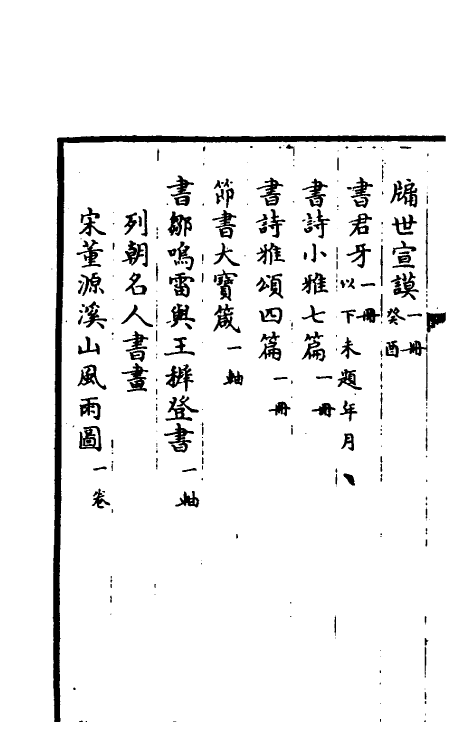 牖世宣謨一冊癸酉
書君牙一冊以下未題年月
書詩小雅七篇一冊
書詩雅頌四篇一冊
節書大寶箴一軸
書鄒鳴雷與王摔登書一軸
列朝名人書畫
宋董源溪山風雨圖一卷